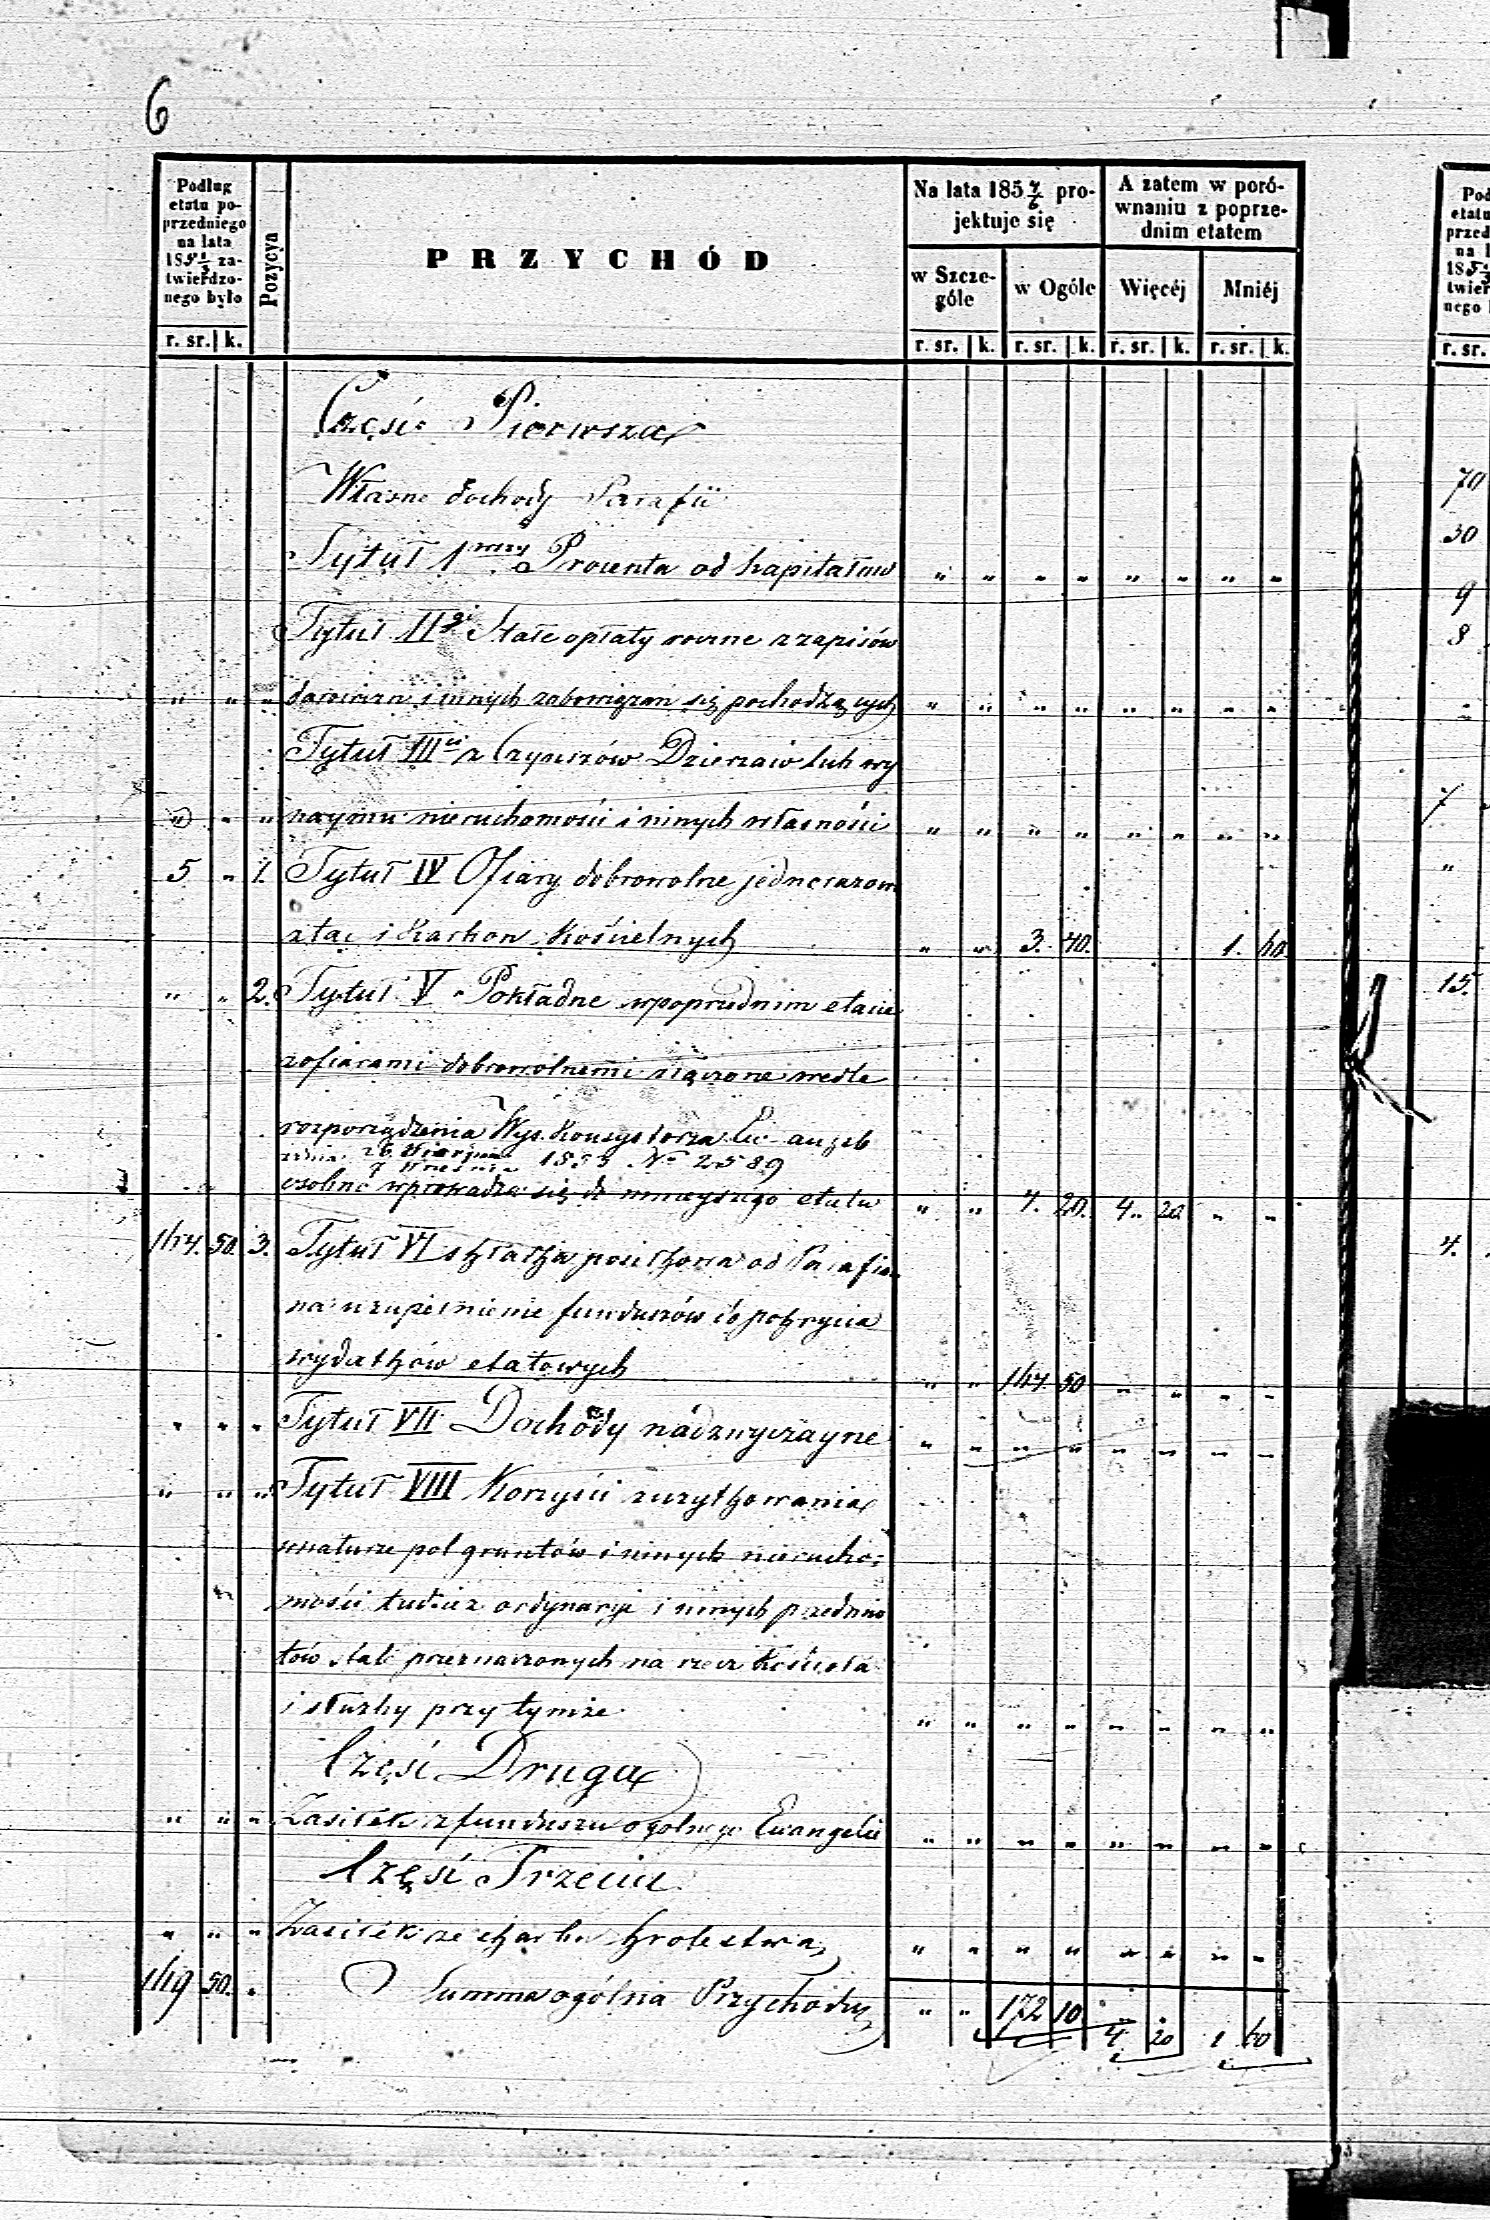 6
Podług etatu poprzedniego na lata 185 1/3 zatwierdzonego było
Pozycya
PRZYCHÓD
Na lata 185 4/6 projektuje się
A zatem w porównaniu z poprzednim etatem
w Szczególe
w Ogóle
Więcéj
Mniéj
r. sr. k. r. sr. k. r. sr. k. r. sr. k. r. sr. k.
Część Pierwsza
Własne dochody Parafii
Tytuł 1wszy Procenta od kapitałow " " " " " " " "
Tytuł IIgi Stałe opłaty roczne z zapisów
" " " darowizn i innych zobowiązan się pochodzących " " " " " " " "
Tytuł IIIci z Czynszów Dzierzaw lub wy
" " " naymu nieruchomości i innych własności " " " " " " " "
5 " 1. Tytuł IV Ofiary dobrowolne jednorazow
z tac i Karbon Kościelnych " " 3. 40. 1. 60
" " 2. Tytuł V Pokładne w poprzednim etacie
z ofiarami dobrowolnemi złączone wedle
rozporządzenia Wys. Konsystorza Ew. augsb
z dnia 26 Sierpnia / 7 Wrzesnia 1853 No 2589
osobno wprowadza się do ninieyszego etatu " " 4. 20. 4. 20 " "
164. 50. 3. Tytuł VI składka posiłkowa od Parafian
na uzupełnienie funduszów do pokrycia
wydatków etatowych " " 164. 50 " " " "
" " " Tytuł VII Dochody nadzwyczayne " " " " " " " "
" " " Tytuł VIII Korzyści z uzytkowania
w naturze pol gruntów i innych nierucho=
mości tudziez ordynaryi i innych przedmio
tów stale przeznaczonych na rzecz Kościoła
i służby przy tymże " " " " " " " "
Część Druga
" " " Zasiłek z funduszu ogolnego Ewangelic " " " " " " " "
Część Trzecia
" " " Zasiłek ze skarbu Krolestwa " " " " " " " "
169 50. " Summa ogólna Przychodu " " 172 10 4 20 1 60
70
30
9
8
7
"
15.
4.